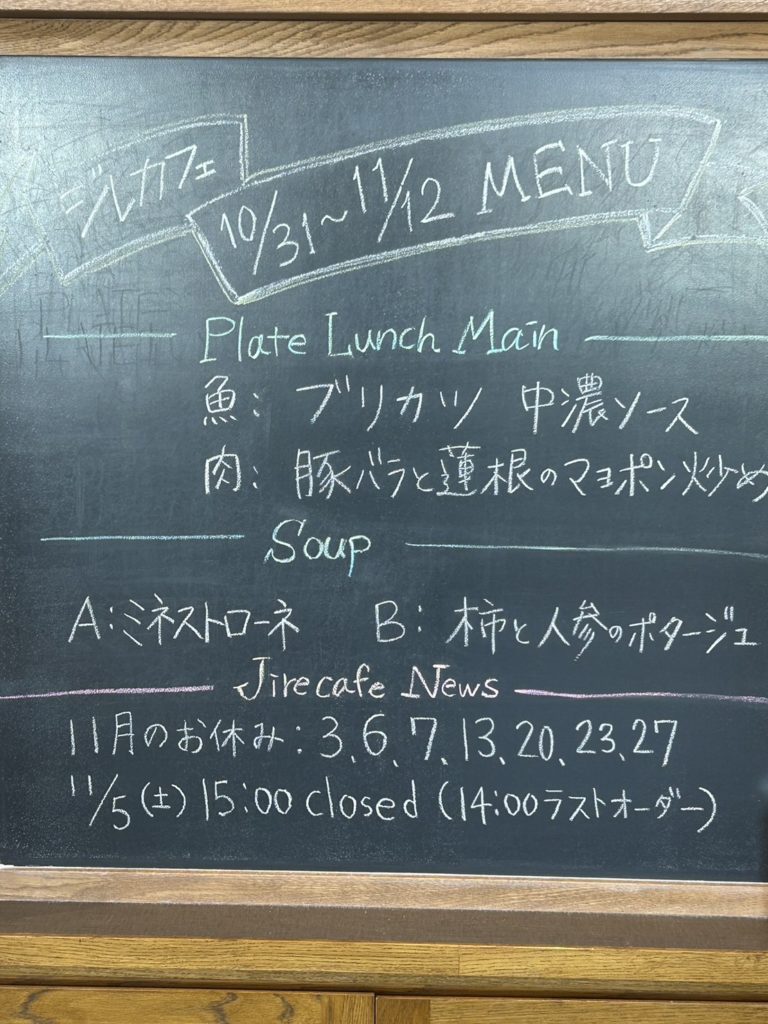 ジルカフェ 10/31~11/12 MENU
Plate Lunch Main
魚: ブリカツ 中濃ソース
肉: 豚バラと蓮根のマヨポン炒め
Soup
A:ミネストローネ B: 柿と人参のポタージュ
Jirecafe News
11月のお休み:3、6、7、13、20、23、27
11/5(土)15:00 closed (14:00ラストオーダー)